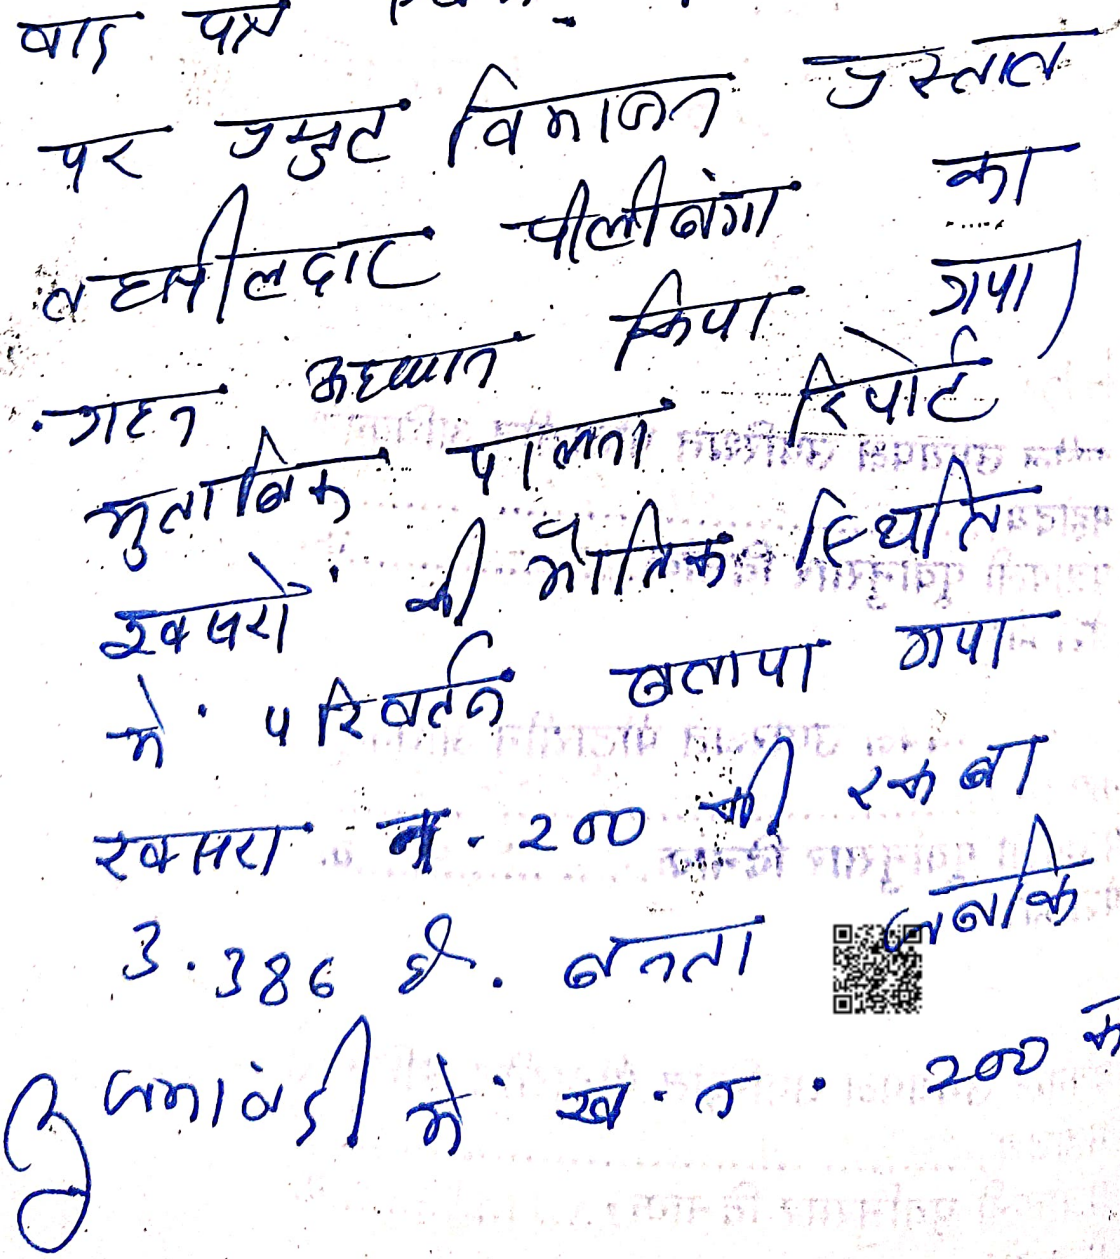 वाद पत्र
पर प्रस्तुत विभाजन प्रस्ताव
तहसीलदार पीलीबंगा का
गहन अध्ययन किया गया।
मुताबिक पालना रिपोर्ट
खसरों की भौतिक स्थिति
में परिवर्तन बताया गया
खसरा नं. 200 की रकबा
3.386 है. बनता जबकि
जमाबंदी में ख. न. 200 क